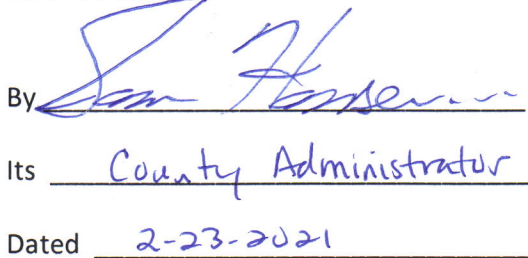 By
Its County Administrator
Dated 2-23-2021